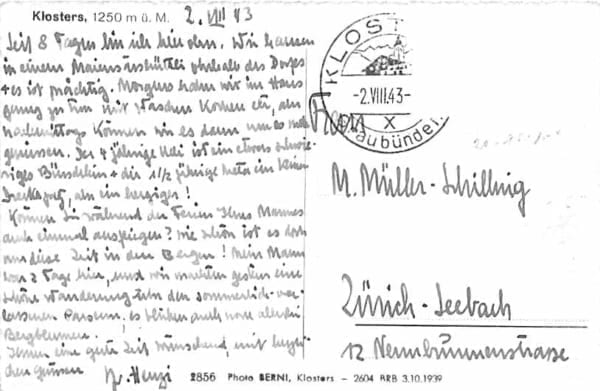 Klosters, 1250 m ü. M. 2. VIII 43
Seit 8 Tagen bin ich hier oben. Wir hausen
in einem Maiensässhüttli oberhalb des Dorfes
& es ist prächtig. Morgens haben wir im Haus
genug zu tun mit Waschen Kochen etc, am
nachmittag können wir es dann
geniessen. Der 4 jährige Ueli ist ein etwas schwie-
riges Bündelein & die 1 1/2 jährige Meta ein kleiner
aber ein herziger!
Können Sie während der Ferien Ihres Mannes
auch einmal ausfliegen? Wie schön ist es doch
um diese Zeit in den Bergen! Mein Mann
war 2 Tage hier, und wir machten gestern eine
schöne Wanderung über den sommerlich ver-
lassenen Parsenn. Es blühen auch noch allerlei
Bergblumen.
Ihnen eine gute Zeit wünschend, mit herzli-
chen Grüssen
KLOSTERS
-2.VIII.43-
X
(Graubünden)
Frau
M. Müller-Schilling
Zürich-Seebach
12 Nennbrunnenstrasse
2856 Photo BERNI, Klosters - 2604 BRB 3.10.1939